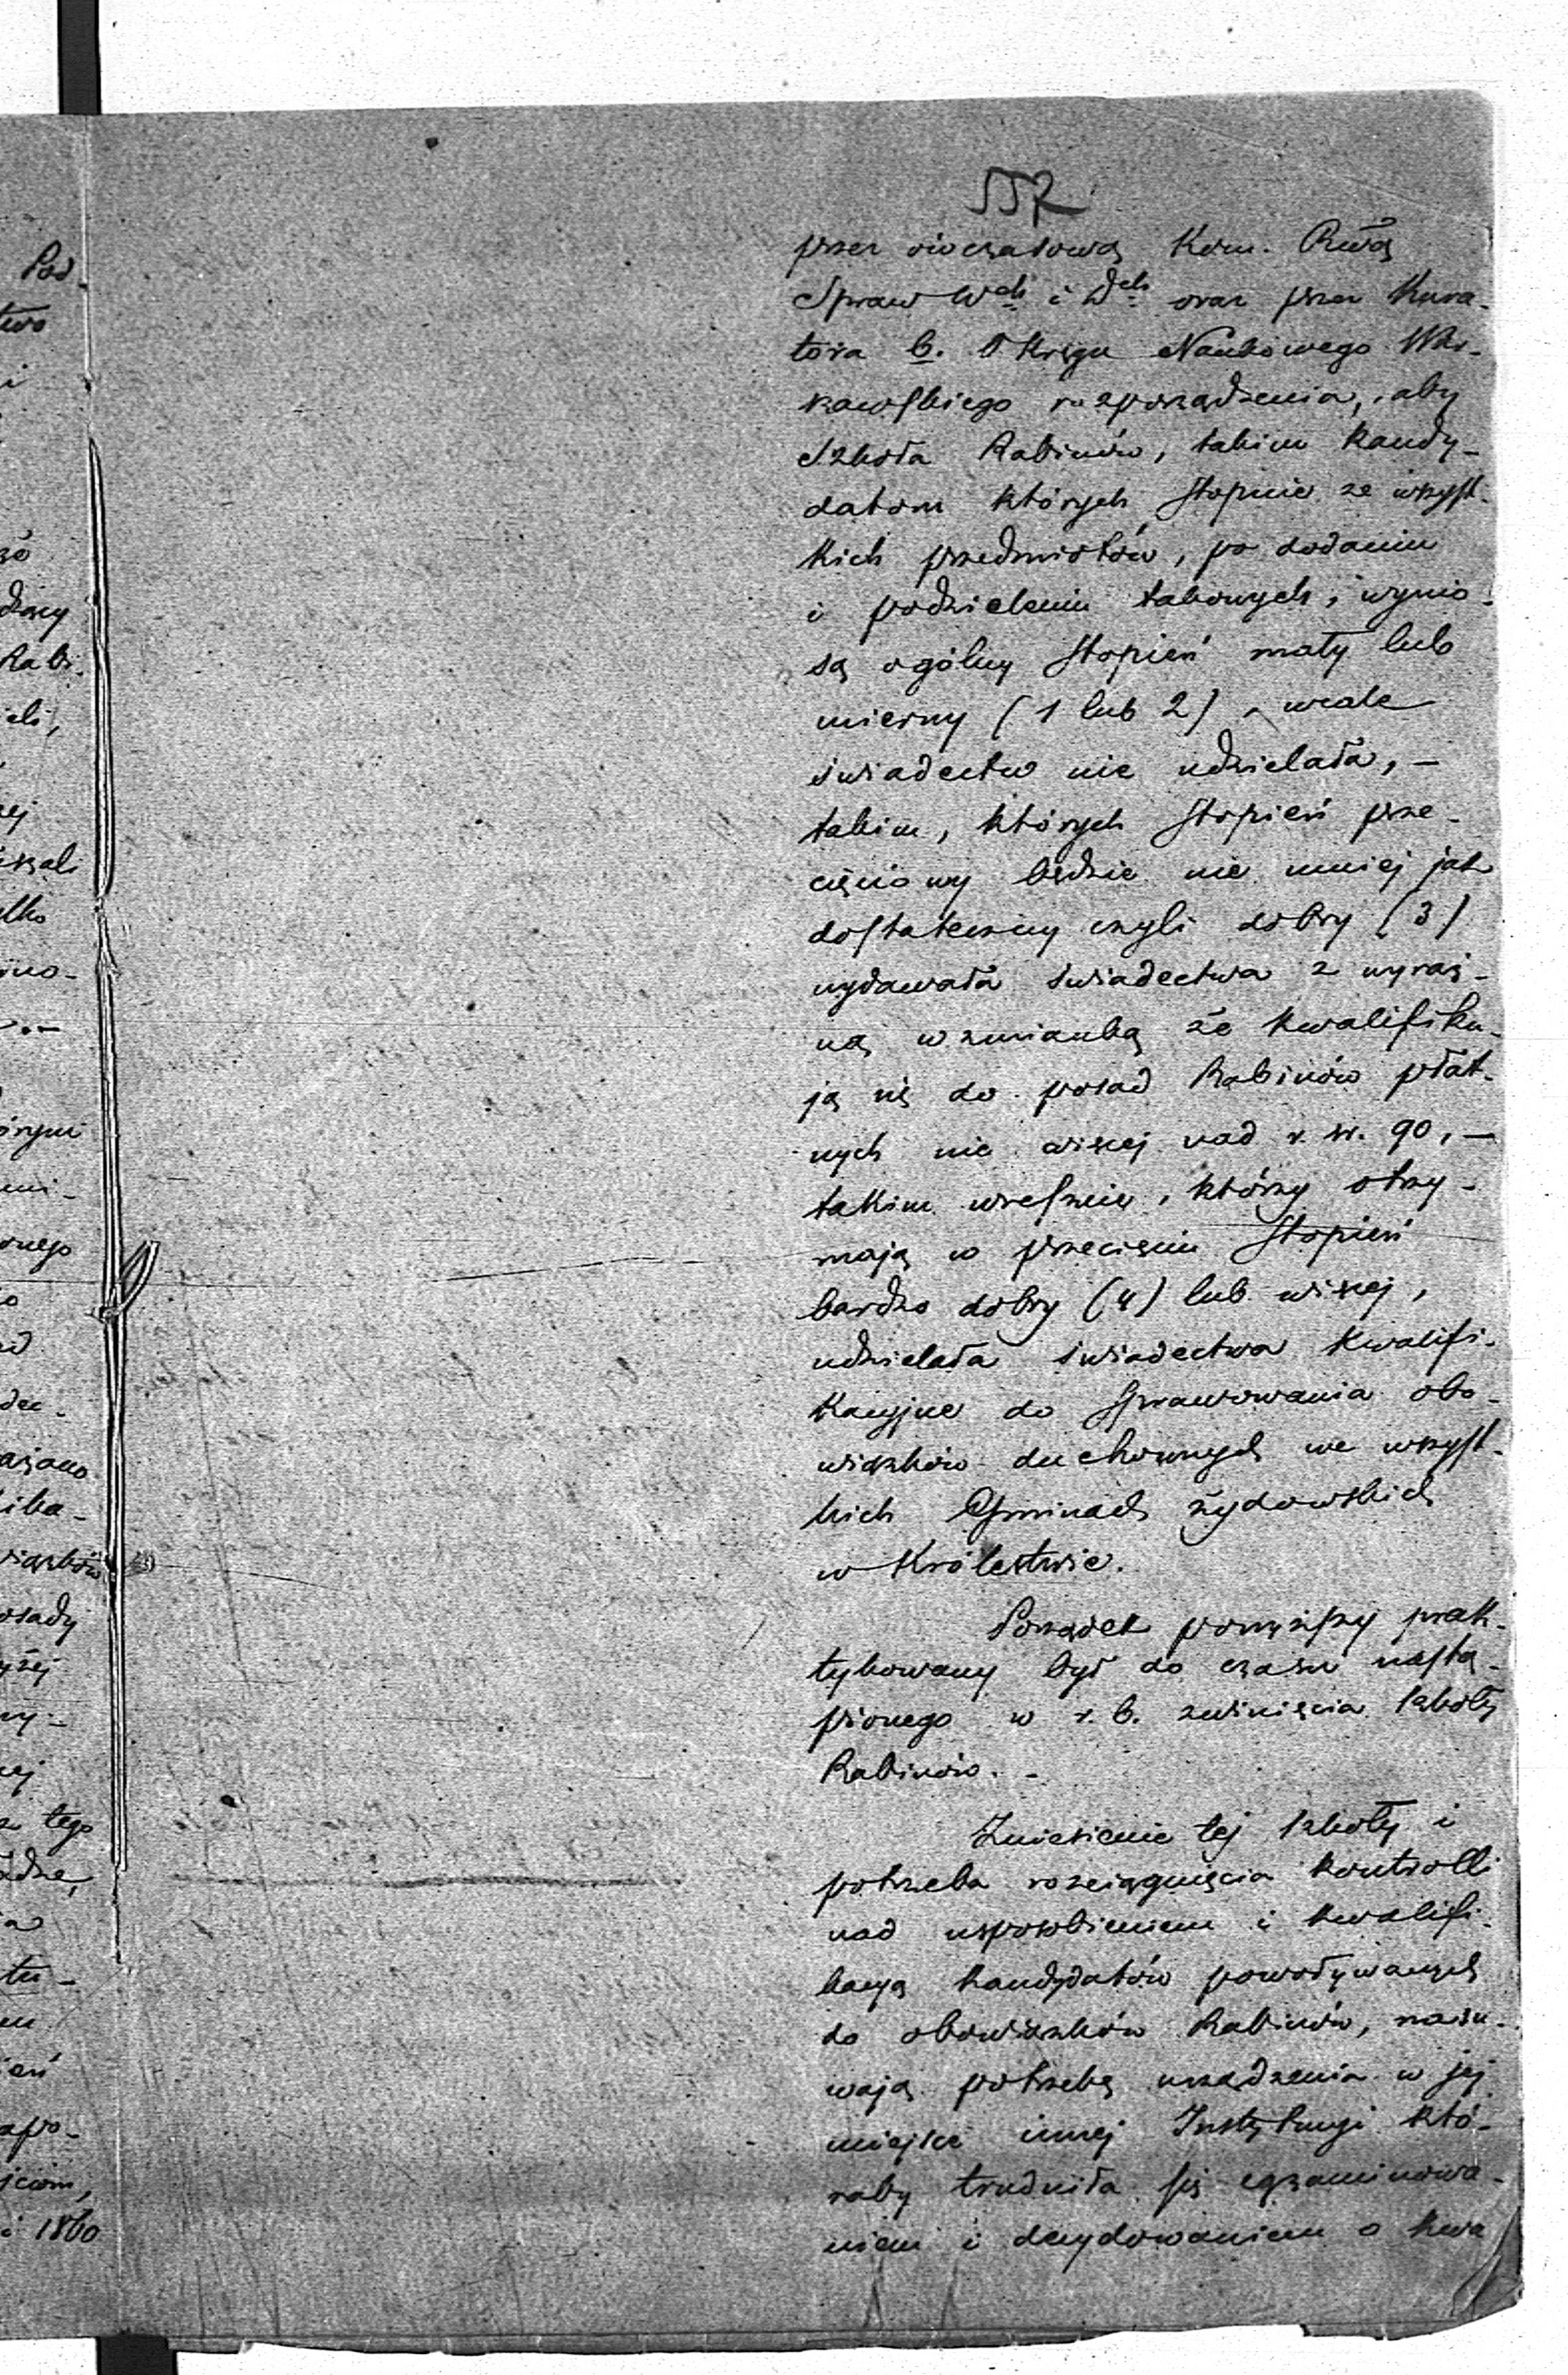 przez ówczasową Kom. Rwą
Spraw Wch i Dch oraz przez Kura-
tora b. Okręgu Naukowego War-
szawskiego rozporządzenia, aby
Szkoła Rabinów, takim kandy-
datom których stopnie ze wszyst-
kich przedmiotów, po dodaniu
i podzieleniu takowych, wynio-
są ogólny stopień mały lub
mierny (1 lub 2), wcale
świadectw nie udzielała, —
takim, których stopień prze-
cięciowy będzie nie mniej jak
dostateczny czyli dobry (3)
wydawała świadectwa z wyraź-
ną wzmianką że kwalifiku-
ją się do posad Rabinów płat-
nych nie więcej nad r. sr. 90, —
takim wreszcie, którzy otrzy-
mają w przecięciu stopień
bardzo dobry (4) lub więcej,
udzielała świadectwa kwalifi-
kacyjne do sprawowania obo-
wiązków duchownych we wszyst-
kich Gminach żydowskich
w Królestwie.
Porządek powyższy prak-
tykowany był do czasu nastą-
pionego w r. b. zwinięcia szkoły
Rabinów. -
Zniesienie tej szkoły i
potrzeba rozciągnięcia kontrolli
nad usposobieniem i kwalifi-
kacyą kandydatów powoływanych
do obowiązków Rabinów, nasu-
wają potrzebę urządzenia w jej
miejsce innej Instytucyi któ-
raby trudniła się egzaminowa-
niem i decydowaniem o kwa
Pod-
two
i
Rabi-
eli,
ej
ono-
órymi
onego
dec-
iązków
osady
yżej
ej
tego
tu-
i 1860